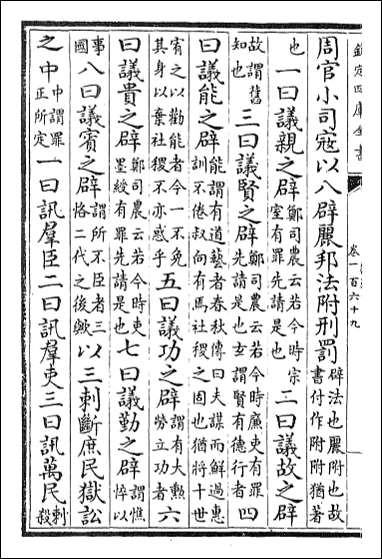 欽定四庫全書
卷一百六十九
周官小司寇以八辟麗邦法附刑罰辟法也麗附也故書付作附附猶著
也一曰議親之辟鄭司農云若今時宗室有罪先請是也二曰議故之辟
故謂舊知也三曰議賢之辟鄭司農云若今時廉吏有罪先請是也女謂賢有德行者四
曰議能之辟能謂有道藝者春秋傳曰夫謀而鮮過惠訓不倦叔向有焉社稷之固也猶將十世
宥之以勸能者今一不免其身以棄社稷不亦惑乎五曰議功之辟謂有大勲勞立功者六
曰議貴之辟鄭司農云若今時吏墨綬有罪先請是也七曰議勤之辟謂憔悴以
事國八曰議賓之辟謂所不臣者三恪二代之後歟以三刺斷庶民獄訟
之中中謂罪正所定一曰訊羣臣二曰訊羣吏三曰訊萬民刺殺